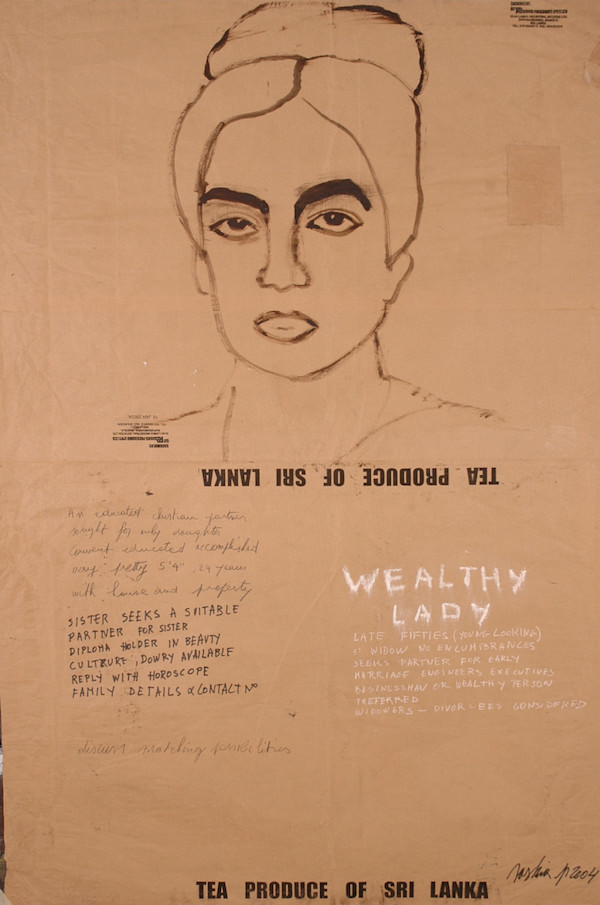 TEA PRODUCE OF SRI LANKA
An educated christian partner
sought for only daughter
convent educated accomplished
very pretty 5'4" , 29 years
with house and property
SISTER SEEKS A SUITABLE
PARTNER FOR SISTER
DIPLOMA HOLDER IN BEAUTY
CULTRURE, DOWRY AVAILABLE
REPLY WITH HOROSCOPE
FAMILY DETAILS & CONTACT NO
discuss matching possibilities
WEALTHY
LADY
LATE FIFTIES (YOUNG LOOKING)
WIDOW NO ENCUMBRANCES
SEEKS PARTNER FOR EARLY
MERRIAGE ENGINEERS EXECUTIVES
BUSINESSMAN OR WEALTHY PERSON
PREFERRED
WIDOWERS – DIVORCEES CONSIDERED
2004
TEA PRODUCE OF SRI LANKA